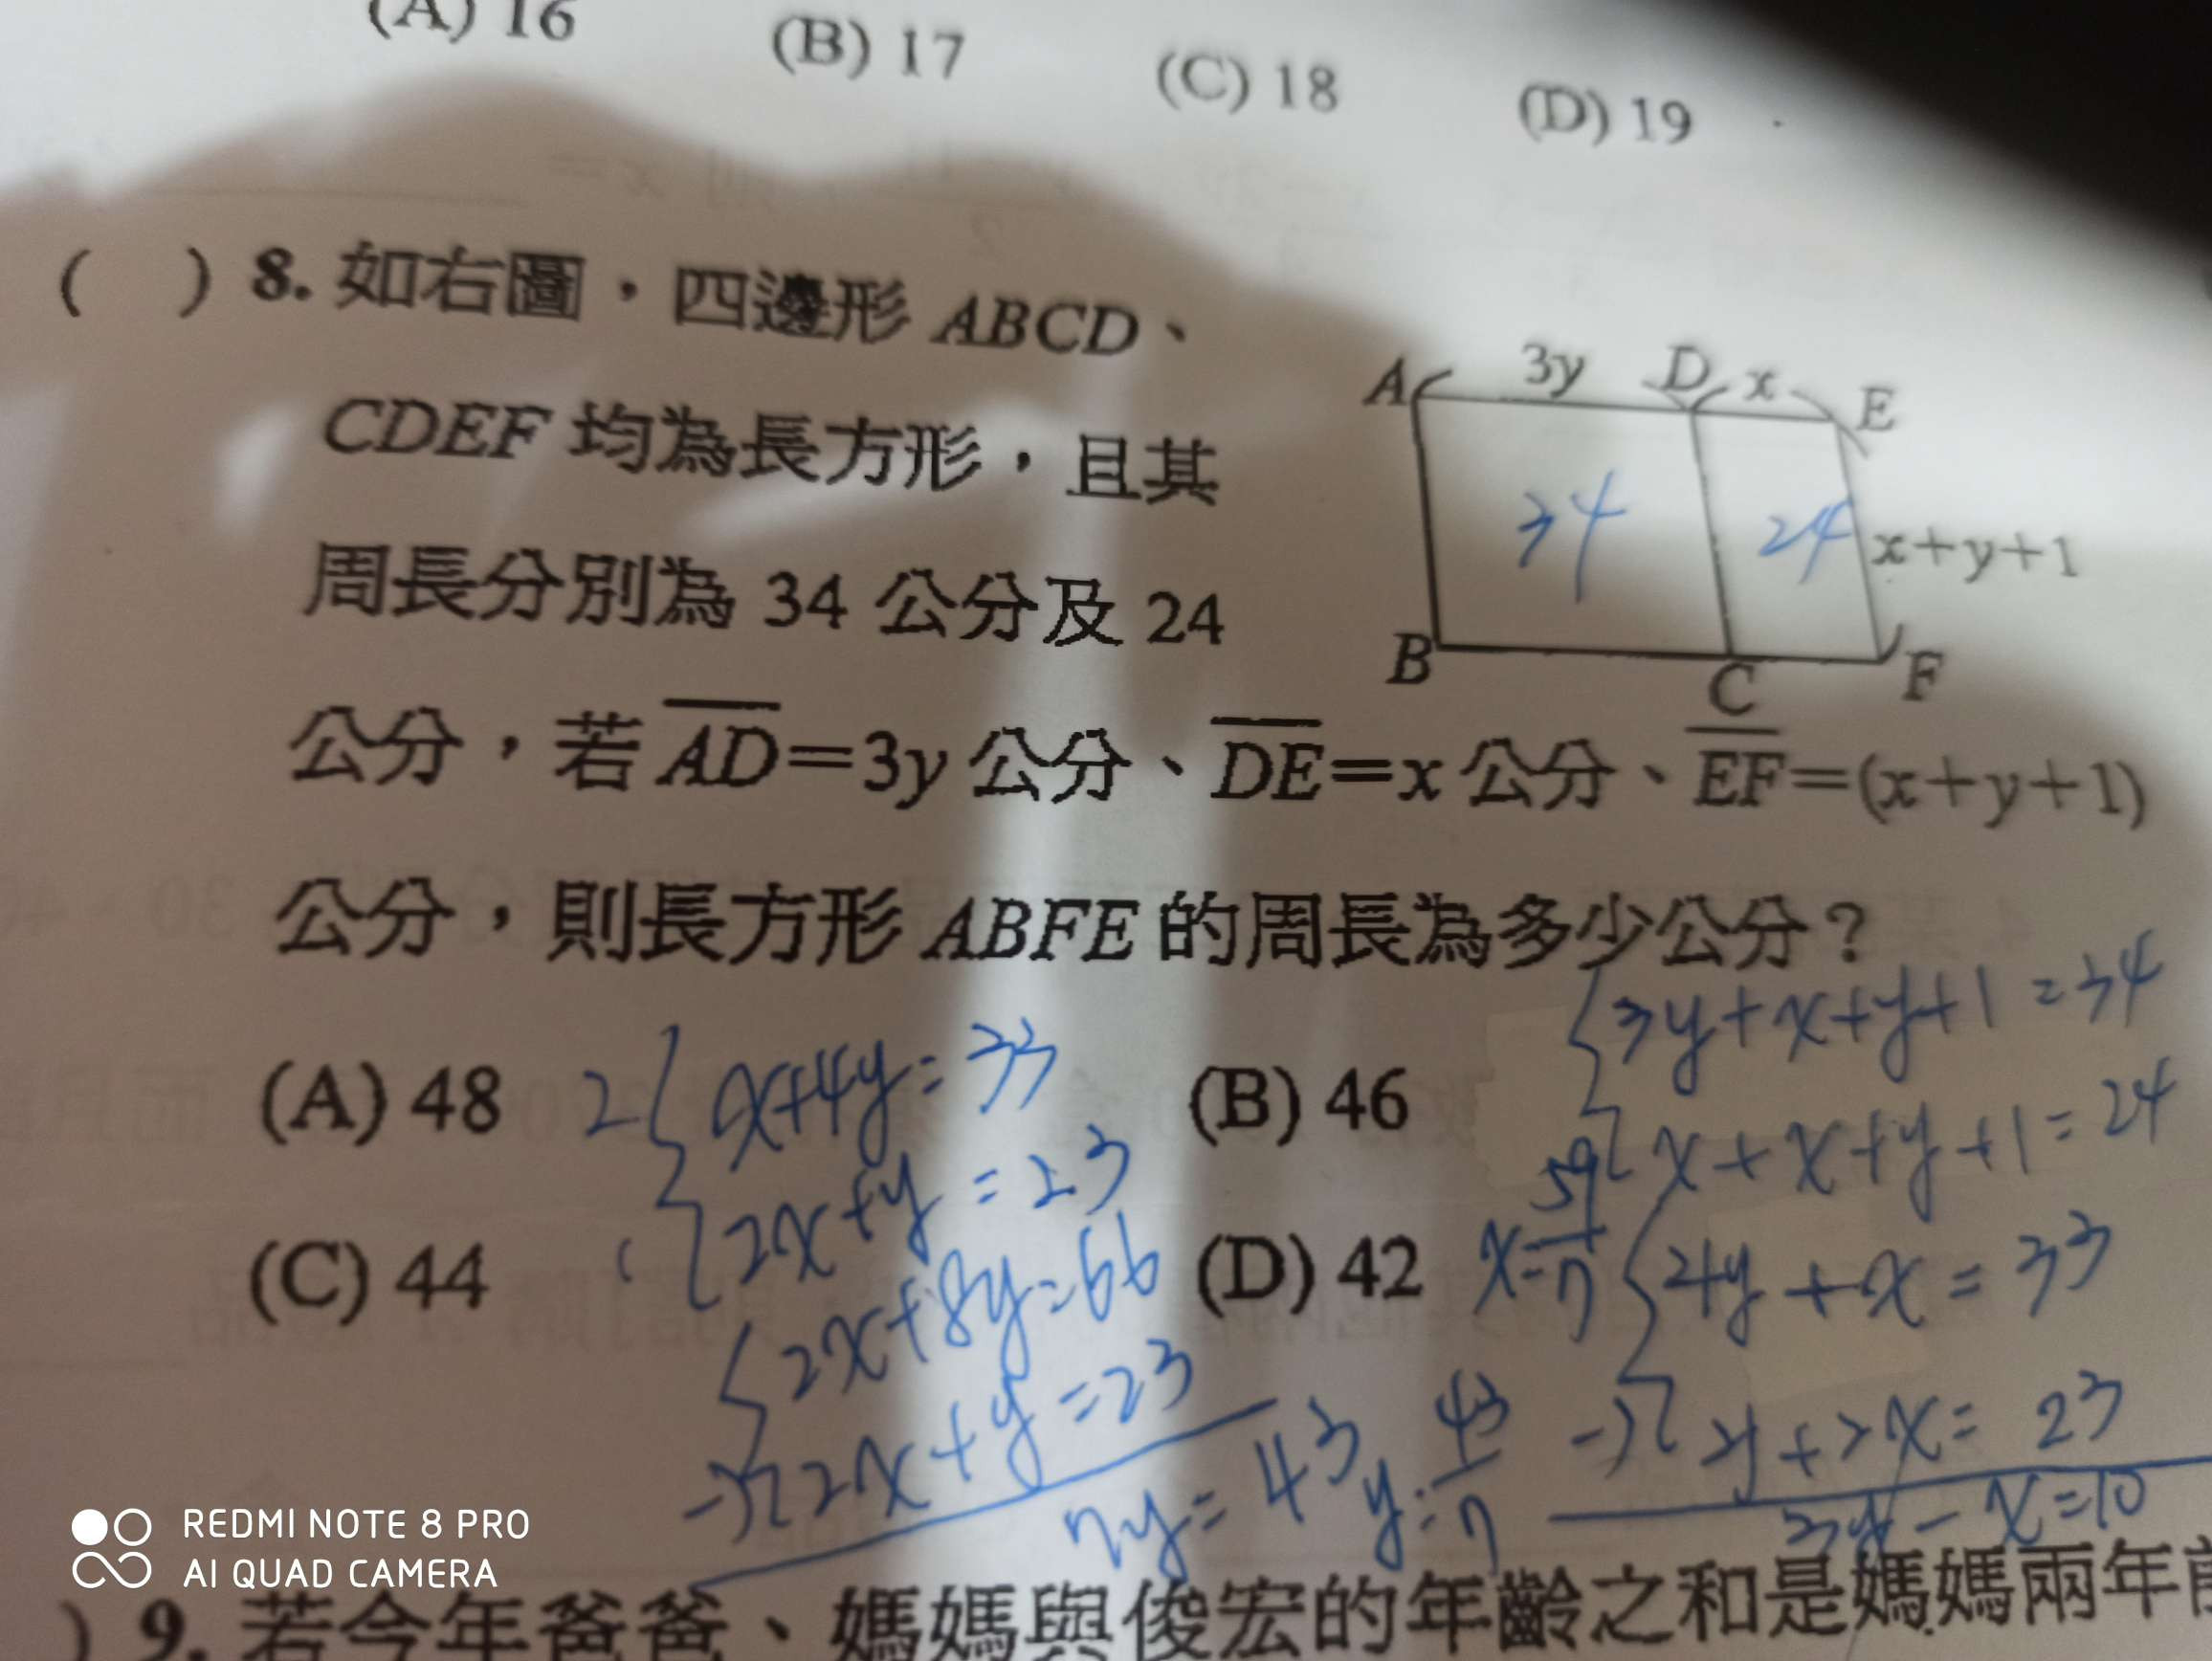 (A) 16 (B) 17 (C) 18 (D) 19
( ) 8. 如右圖，四邊形 ABCD、
CDEF 均為長方形，且其
周長分別為 34 公分及 24
公分，若 AD=3y 公分、DE=x 公分、EF=(x+y+1)
公分，則長方形 ABFE 的周長為多少公分？
A 3y D x E
34 24 x+y+1
B C F
(A) 48 (B) 46
(C) 44 (D) 42
3y+x+y+1=34
x+x+y+1=24
4y+x=33
-) y+2x=23
3y-x=10
2 x+4y=33
2x+y=23
2x+8y=66
-) 2x+y=23
7y=43
y=43/7
x=59/7
) 9. 若今年爸爸、媽媽與俊宏的年齡之和是媽媽兩年前
REDMI NOTE 8 PRO
AI QUAD CAMERA